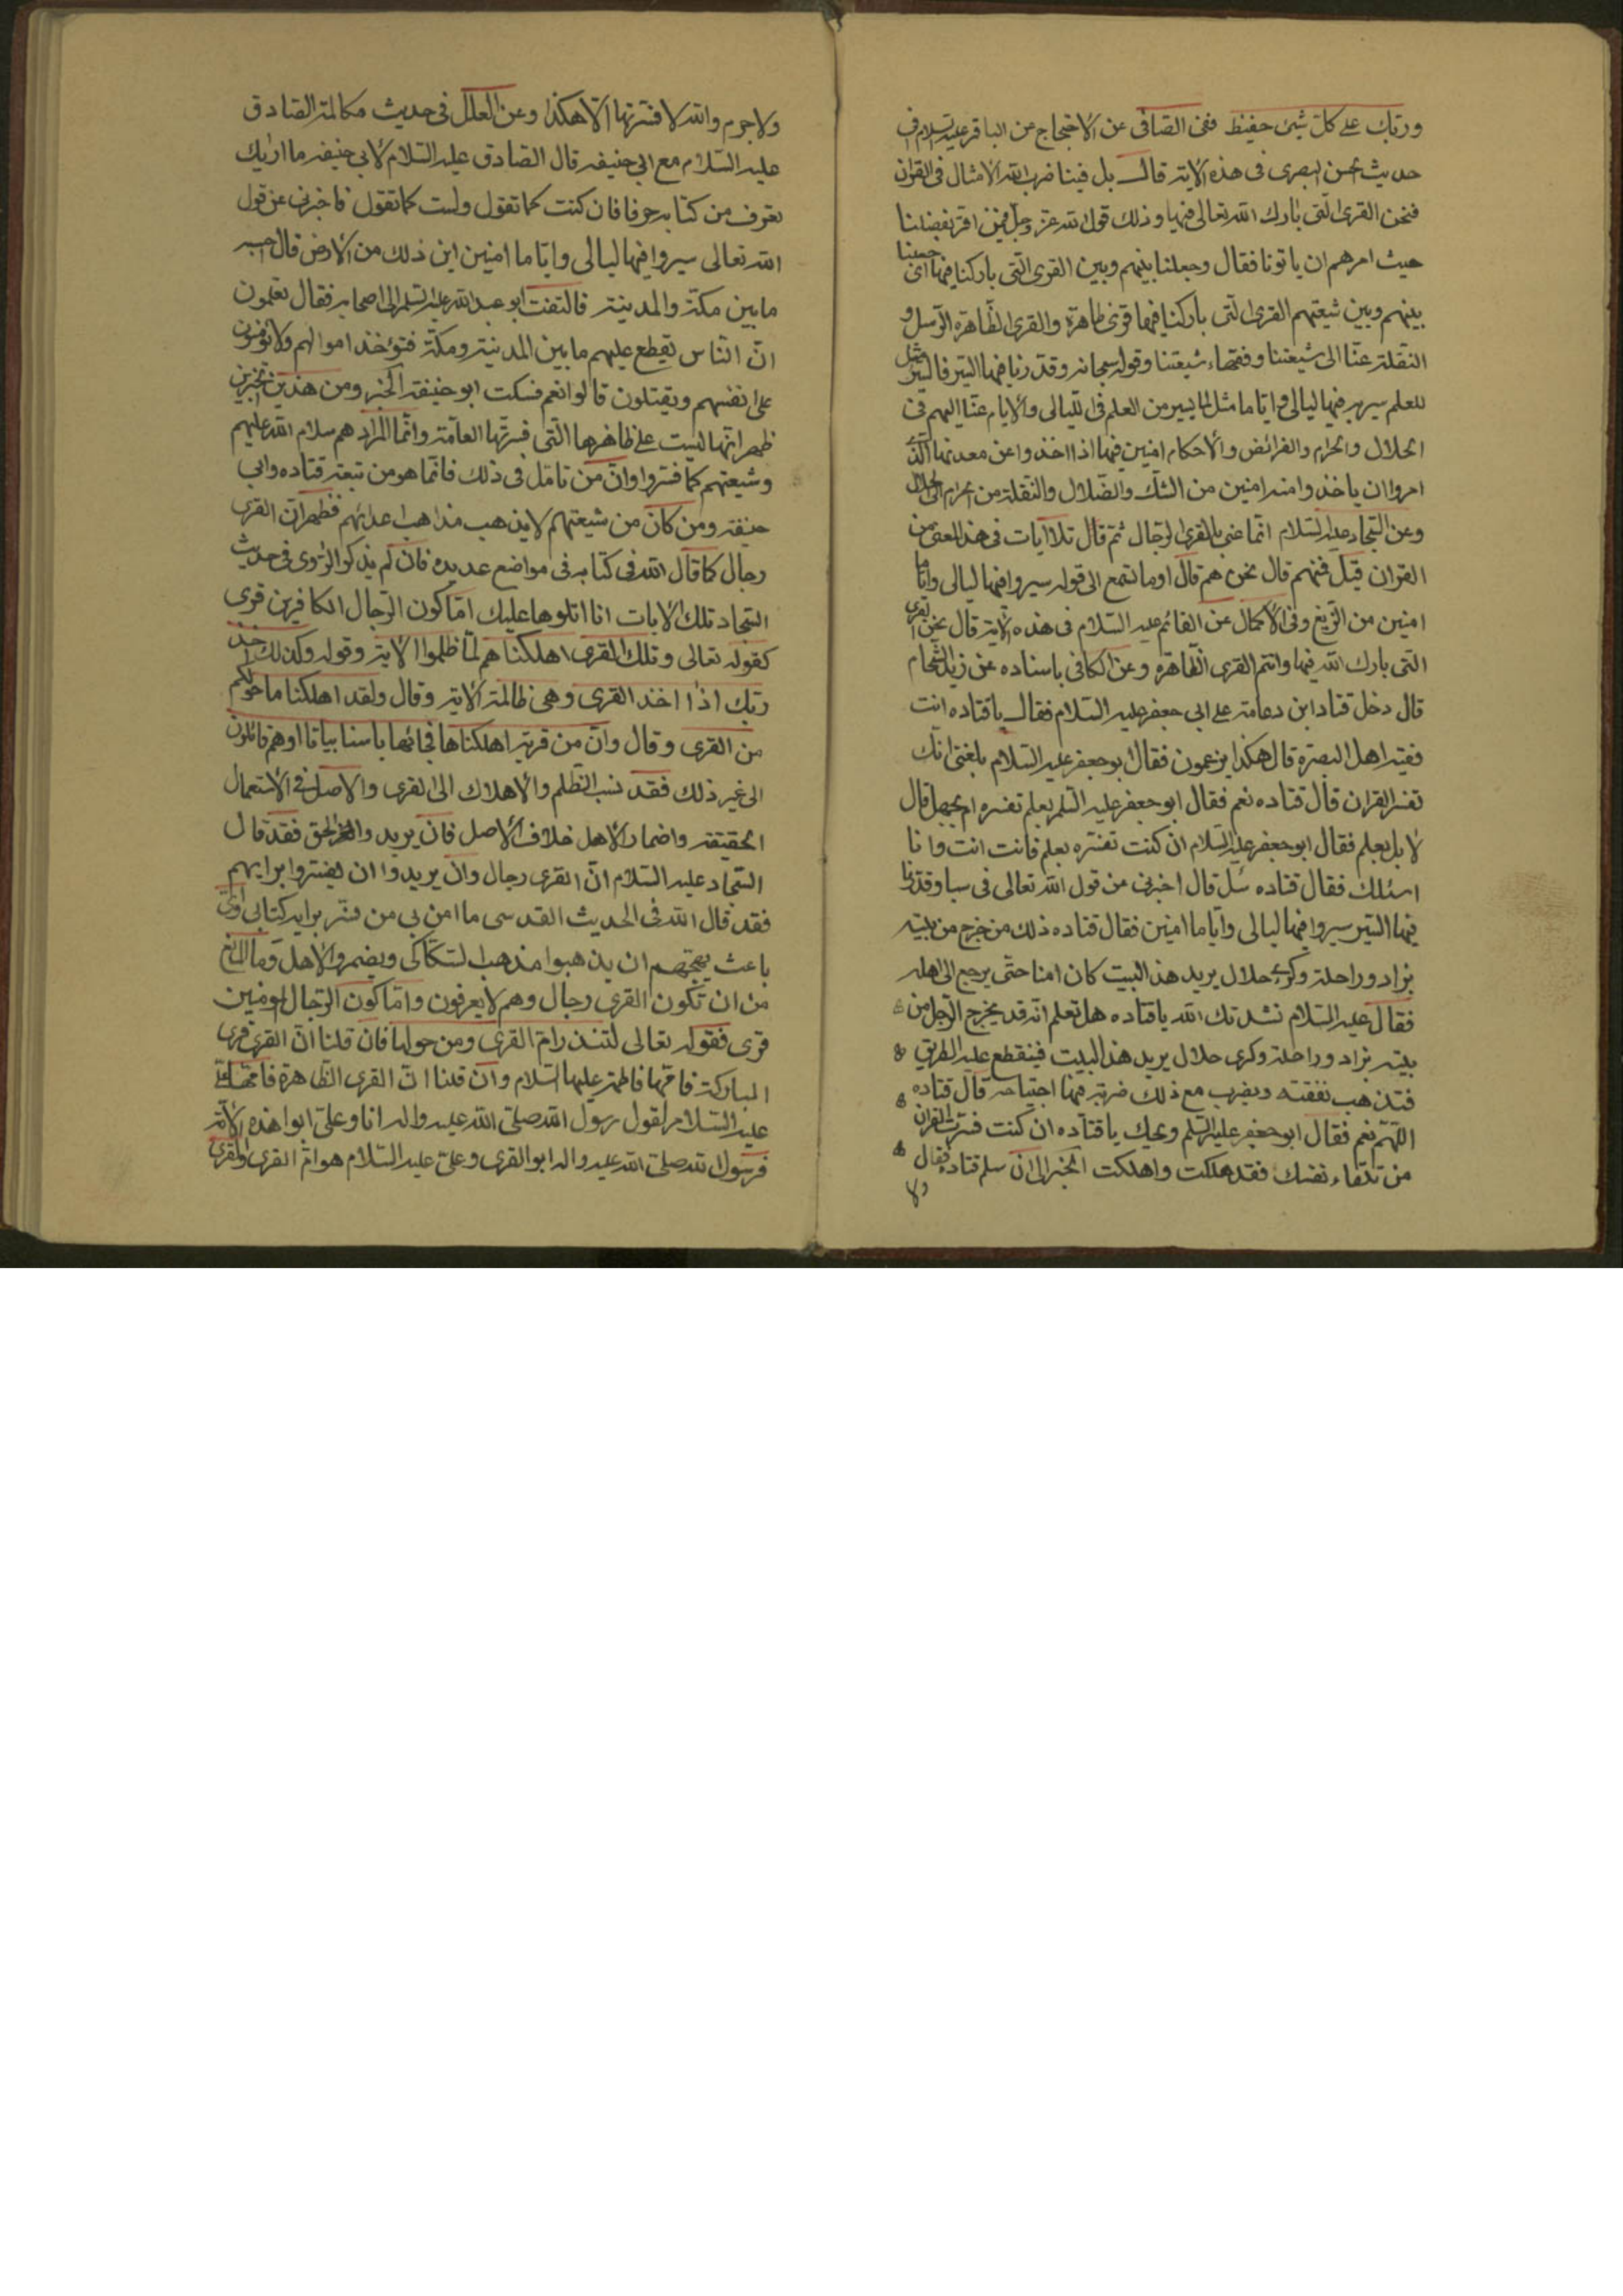 وربك على كل شيئ حفيظ ففى الصافى عن الاحتجاج عن الباقر عليه السلام فى
حديث الحسن البصرى فى هذه الاية قال بل فينا ضرب الله الامثال فى القران
فنحن القرى الّتى بارك الله تعالى فيها وذلك قول الله عز وجل فمن اقر بفضلنا
حيث امرهم ان ياتونا فقال وجعلنا بينهم وبين القرى الّتى باركنا فيها اى جعلنا
بينهم وبين شيعتهم القرى الّتى باركنا فيها قرى ظاهرة والقرى الظّاهرة الرّسل و
النقلة عنّا الى شيعتنا وفقهاء شيعتنا وقوله سبحانه وقدّرنا فيها السّير فالسّير مثل
للعلم سير به فيها ليالى وايّاما مثل لما يسير من العلم فى اللّيالى والايام عنّا اليهم فى
الحلال والحرام والفرائض والاحكام امنين فيها اذا اخذوا عن معدنها الّذى
امروا ان ياخذوا منه امنين من الشكّ والضّلال والنّقلة من الحرام الى الحلال
وعن السّجاد عليه السّلام انّما عنى بالقرى الرّجال ثم قال تلا ايات فى هذا المعنى من
القران قيل فمنهم قال نحن هم قال اوما تسمع الى قوله سيروا فيها ليالى وايّاما
امنين من الزّيغ وفى الاكمال عن القائم عليه السّلام فى هذه الاية قال نحن القرى
الّتى بارك الله فيها وانتم القرى الظّاهرة وعن الكافى باسناده عن زيد الشّحام
قال دخل قتادة ابن دعامة على ابى جعفر عليه السّلام فقال يا قتاده انت
فقيه اهل البصرة قال هكذا يزعمون فقال ابو جعفر عليه السّلام بلغنى انّك
تفسر القران قال قتاده نعم فقال ابو جعفر عليه السّلم بعلم تفسره ام بجهل قال
لا بل بعلم فقال ابو جعفر عليه السّلام ان كنت تفسّره بعلم فانت انت وانا
اسئلك فقال قتاده سل قال اخبرنى عن قول الله تعالى فى سبا وقدّرنا
فيها السّير سيروا فيها ليالى وايّاما امنين فقال قتاده ذلك من خرج من بيته
بزاد وراحلة وكرى حلال يريد هذا البيت كان امنا حتّى يرجع الى اهله
فقال عليه السّلام نشدتك الله يا قتاده هل تعلم انّه قد يخرج الرّجل من
بيته بزاد وراحلة وكرى حلال يريد هذا البيت فينقطع عليه الطريق
فتذهب نفقته ويضرب مع ذلك ضربة فيها اجتياحه قال قتاده
اللّهمّ نعم فقال ابو جعفر عليه السّلم ويحك يا قتاده ان كنت فسّرت القران
من تلقاء نفسك فقد هلكت واهلكت الخبر الى ان سلم قتاده فقال
ولا
ولاجرم والله لا فسّرتها الّا هكذا وعن العلل فى حديث مكالمة الصادق
عليه السّلام مع ابى حنيفه قال الصادق عليه السّلام لابى حنيفه ما اراك
تعرف من كتابه حرفا فان كنت كما تقول ولست كما تقول فاخبرنى عن قول
الله تعالى سيروا فيها ليالى وايّاما امنين اين ذلك من الارض قال احسبه
ما بين مكّة والمدينة فالتفت ابو عبد الله عليه السّلم الى اصحابه فقال تعلمون
انّ النّاس تقطع عليهم ما بين المدينة ومكّة فتؤخذ اموالهم ولا يؤمنون
على انفسهم ويقتلون قالوا نعم فسكت ابو حنيفة الخبر ومن هذين الخبرين
ظهر انّها ليست على ظاهرها الّتى فسرتها العامّة وانّما المراد هم سلام الله عليهم
وشيعتهم كما فسّروا وانّ من تامل فى ذلك فانّما هو من تبعة قتاده وابى
حنيفه ومن كان من شيعتهم لا يذهب مذاهب اعدائهم فظهر انّ القرى
رجال كما قال الله فى كتابه فى مواضع عديده فان لم يذكر الرّاوى فى حديث
السّجاد تلك الايات انا اتلوها عليك امّا كون الرّجال الكافرين قرى
كقوله تعالى وتلك القرى اهلكناهم لمّا ظلموا الاية وقوله وكذلك اخذ
ربّك اذا اخذ القرى وهى ظالمة الاية وقال ولقد اهلكنا ما حولكم
من القرى وقال وان من قرية اهلكناها فجائها باسنا بياتا اوهم قائلون
الى غير ذلك فقد نسب الظّلم والاهلاك الى القرى والاصل فى الاستعمال
الحقيقة واضمار الاهل خلاف الاصل فان يريدوا الحق فقد قال
السّجاد عليه السّلام انّ القرى رجال وان يريدوا ان يفسّروا برايهم
فقد قال الله فى الحديث القدسى ما امن بى من فسّر برايه كتابى واىّ
باعث يهيّجهم ان يذهبوا مذهب السّكّاكى ويضمروا الاهل وما المانع
من ان تكون القرى رجال وهم لا يعرفون وامّا كون الرّجال المؤمنين
قرى فقوله تعالى لتنذر امّ القرى ومن حولها فان قلنا انّ القرى قرى
المباركة فامّها فاطمة عليها السّلام وان قلنا انّ القرى الظّاهرة فامّها علىّ
عليه السّلام لقول رسول الله صلى الله عليه واله انا وعلىّ ابوا هذه الامّة
فرسول الله صلى الله عليه واله ابو القرى وعلىّ عليه السّلام هو امّ القرى والقرى